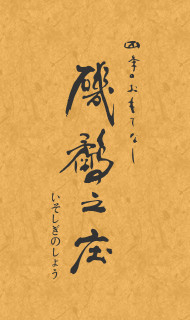 四季のおもてなし
磯鷸之庄
いそしぎのしょう